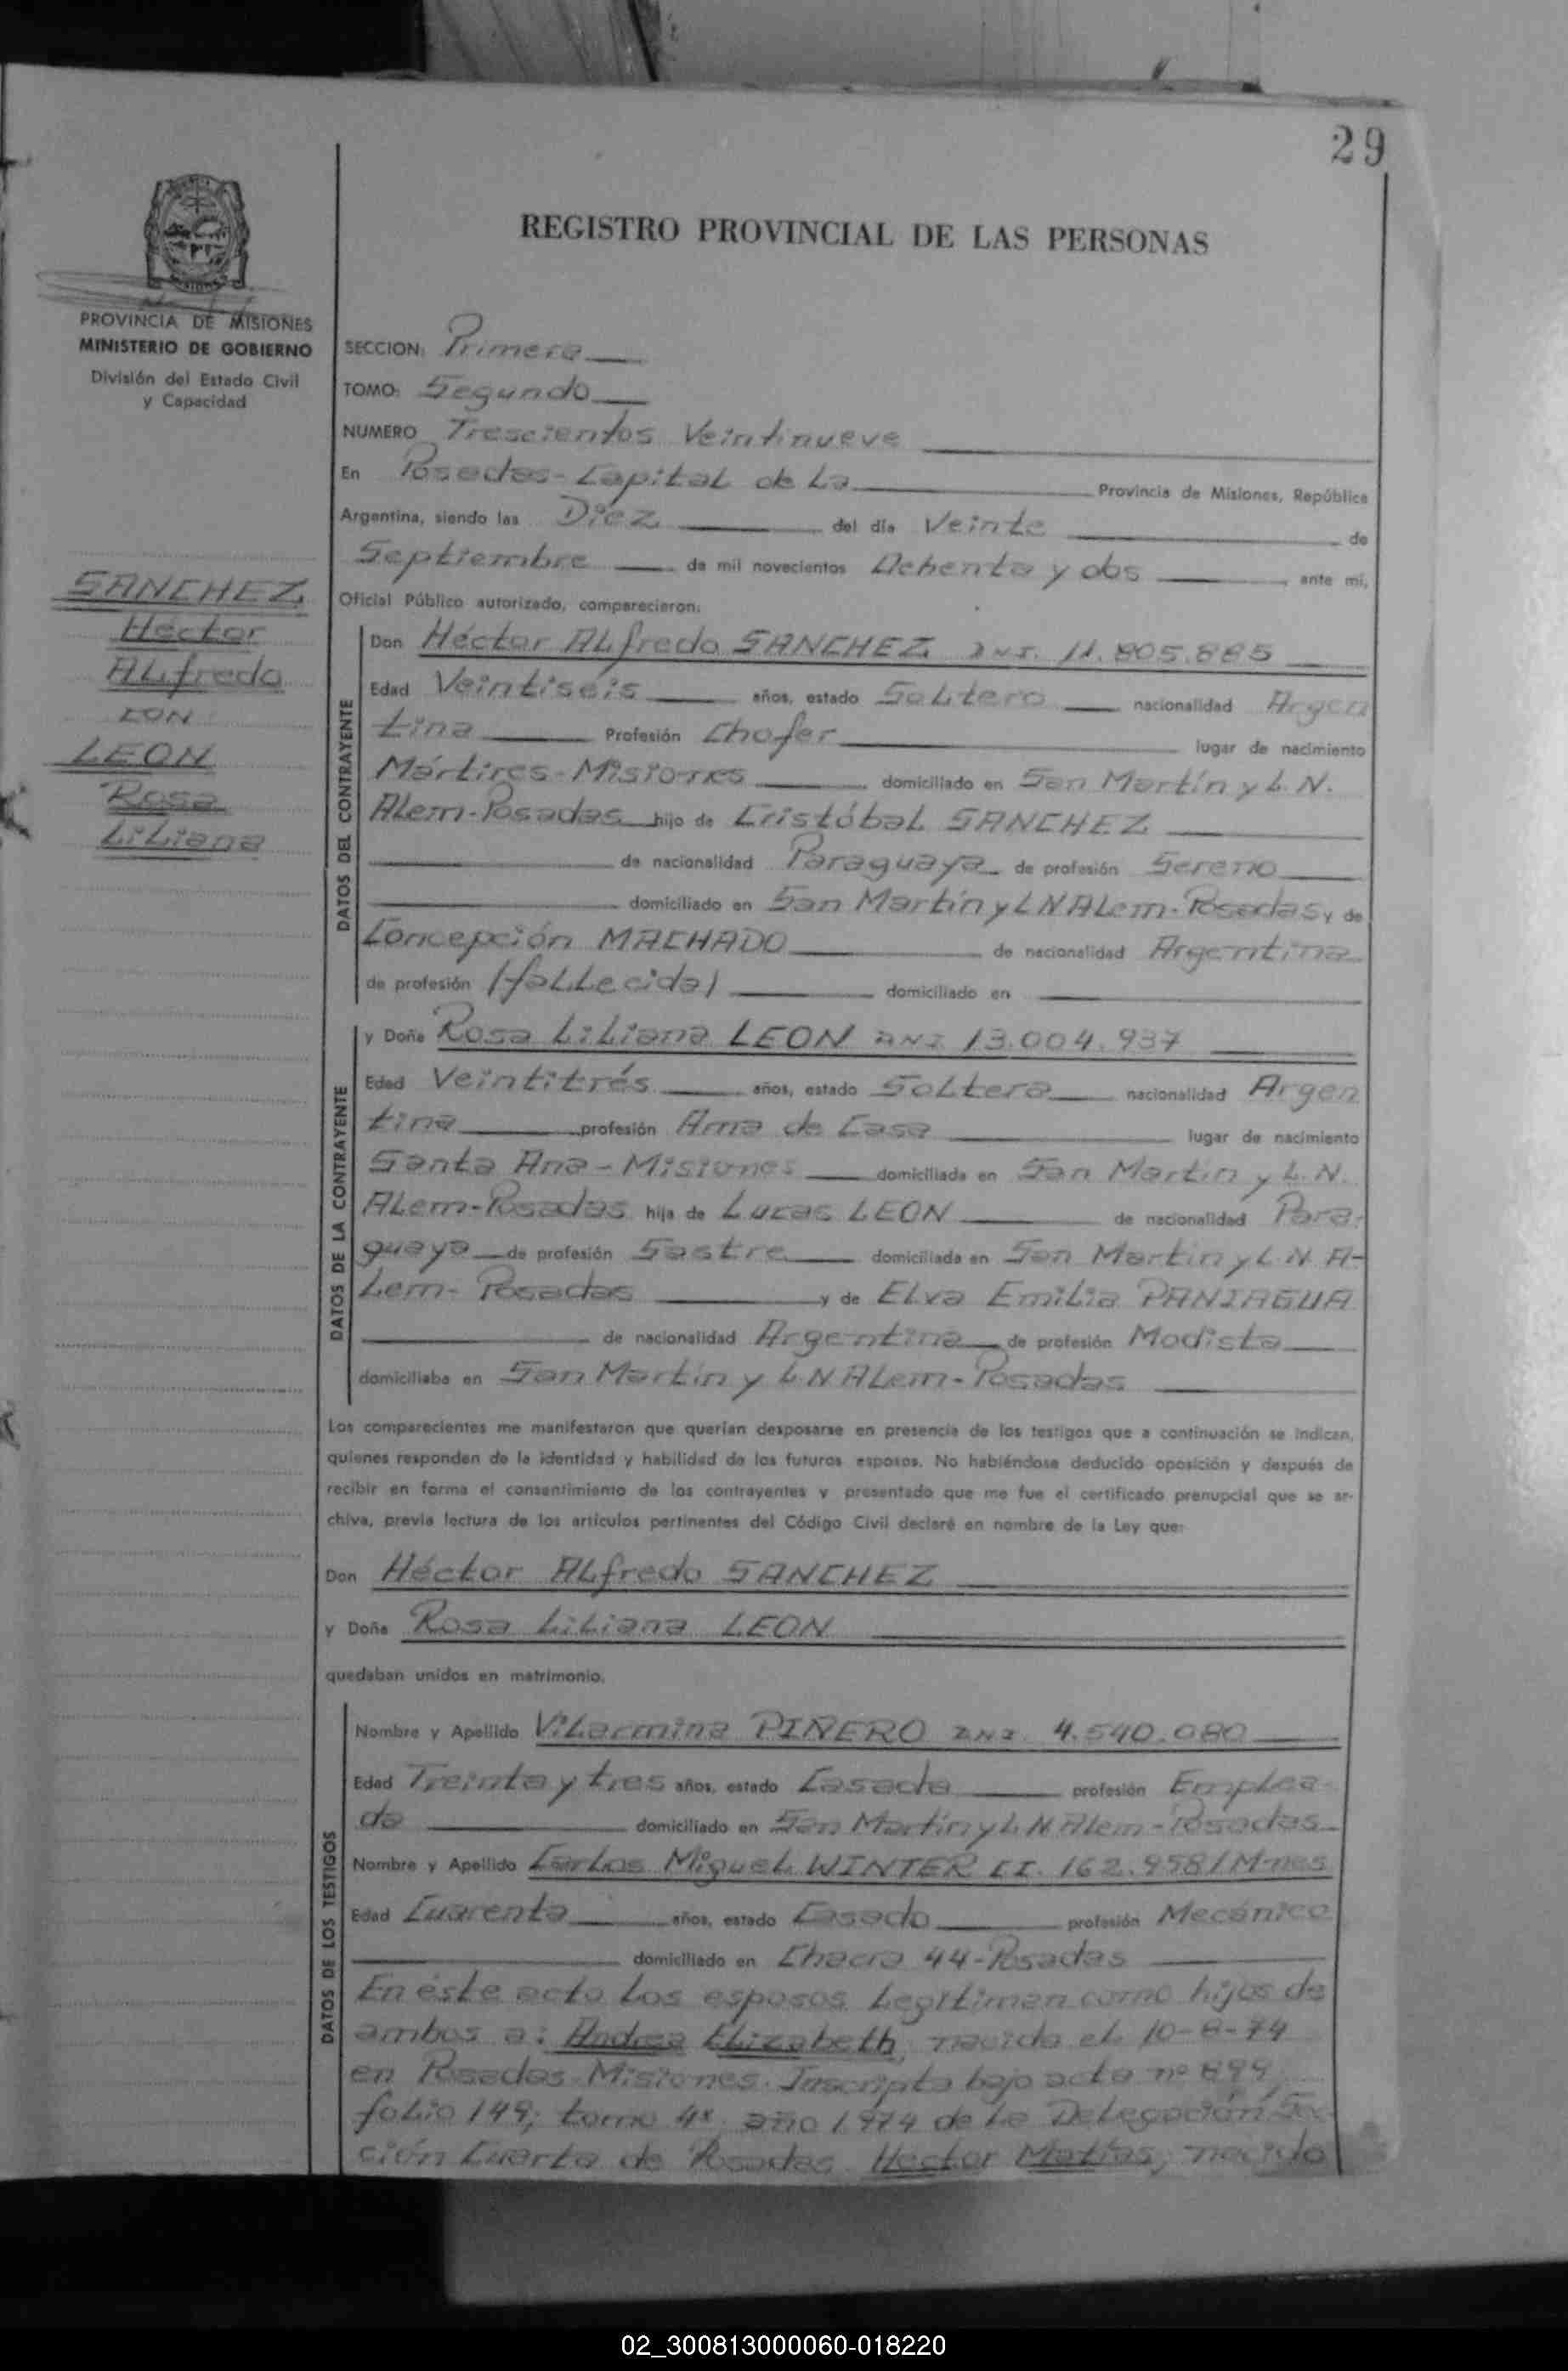 29
REGISTRO PROVINCIAL DE LAS PERSONAS
PROVINCIA DE MISIONES
MINISTERIO DE GOBIERNO
División del Estado Civil
y Capacidad
SANCHEZ
Héctor
ALfredo
CON
LEON
Rosa
LiLiana
SECCION: Primera
TOMO: Segundo
NUMERO Trescientos Veintinueve
En Posadas-Capital de La Provincia de Misiones, República
Argentina, siendo las Diez del día Veinte de
Septiembre de mil novecientos Ochenta y dos ante mí,
Oficial Público autorizado, comparecieron:
DATOS DEL CONTRAYENTE
Don Héctor ALfredo SANCHEZ DNI. 11.805.885
Edad Veintiséis años, estado SoLtero nacionalidad Argen
tina Profesión Chofer lugar de nacimiento
Mártires-Misiones domiciliado en San Martín y L.N.
ALem-Posadas hijo de CristóbaL SANCHEZ
de nacionalidad Paraguaya de profesión Sereno
domiciliado en San Martín y L N ALem-Posadas y de
Concepción MACHADO de nacionalidad Argentina
de profesión (faLLecida) domiciliado en
DATOS DE LA CONTRAYENTE
y Doña Rosa LiLiana LEON DNI 13.004.937
Edad Veintitrés años, estado SoLtera nacionalidad Argen
tina profesión Ama de Casa lugar de nacimiento
Santa Ana-Misiones domiciliada en San Martín y L.N.
ALem-Posadas hija de Lucas LEON de nacionalidad Para-
guaya de profesión Sastre domiciliada en San Martín y L.N. A-
Lem- Posadas y de ELva EmiLia PANIAGUA
de nacionalidad Argentina de profesión Modista
domiciliaba en San Martín y L.N ALem-Posadas
Los comparecientes me manifestaron que querían desposarse en presencia de los testigos que a continuación se indican,
quienes responden de la identidad y habilidad de los futuros esposos. No habiéndose deducido oposición y después de
recibir en forma el consentimiento de los contrayentes y presentado que me fue el certificado prenupcial que se ar-
chiva, previa lectura de los artículos pertinentes del Código Civil declaré en nombre de la Ley que:
Don Héctor ALfredo SANCHEZ
y Doña Rosa LiLiana LEON
quedaban unidos en matrimonio.
DATOS DE LOS TESTIGOS
Nombre y Apellido ViLarmina PIÑERO DNI. 4.540.080
Edad Treinta y tres años, estado Casada profesión Emplea-
da domiciliado en San Martín y L N ALem-Posadas
Nombre y Apellido CarLos MigueL WINTER CI. 162.958/M-nes
Edad Cuarenta años, estado Casado profesión Mecánico
domiciliado en Chacra 44-Posadas
En éste acto Los esposos Legitiman como hijos de
ambos a: Andrea ELizabeth, nacida eL 10-8-74
en Posadas-Misiones. Inscripta bajo acta nº 899,
foLio 149; tomo 4º año 1974 de La DeLegación Sec
ción Cuarta de Posadas. Hector Matías, nacido
02_300813000060-018220